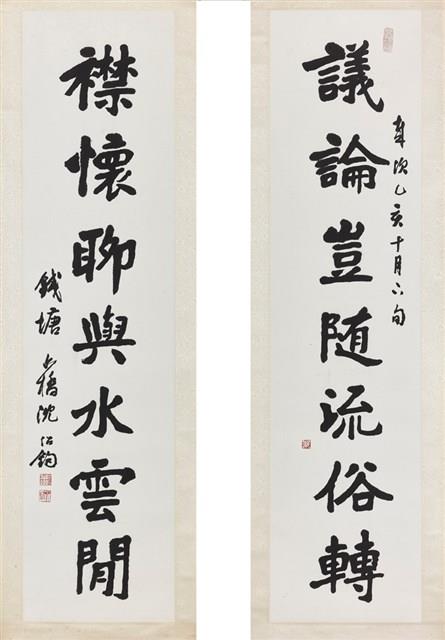 議論豈随流俗轉
歲次乙亥十月下旬
襟懷聊與水雲閒
錢塘 上橋沈紹鈞